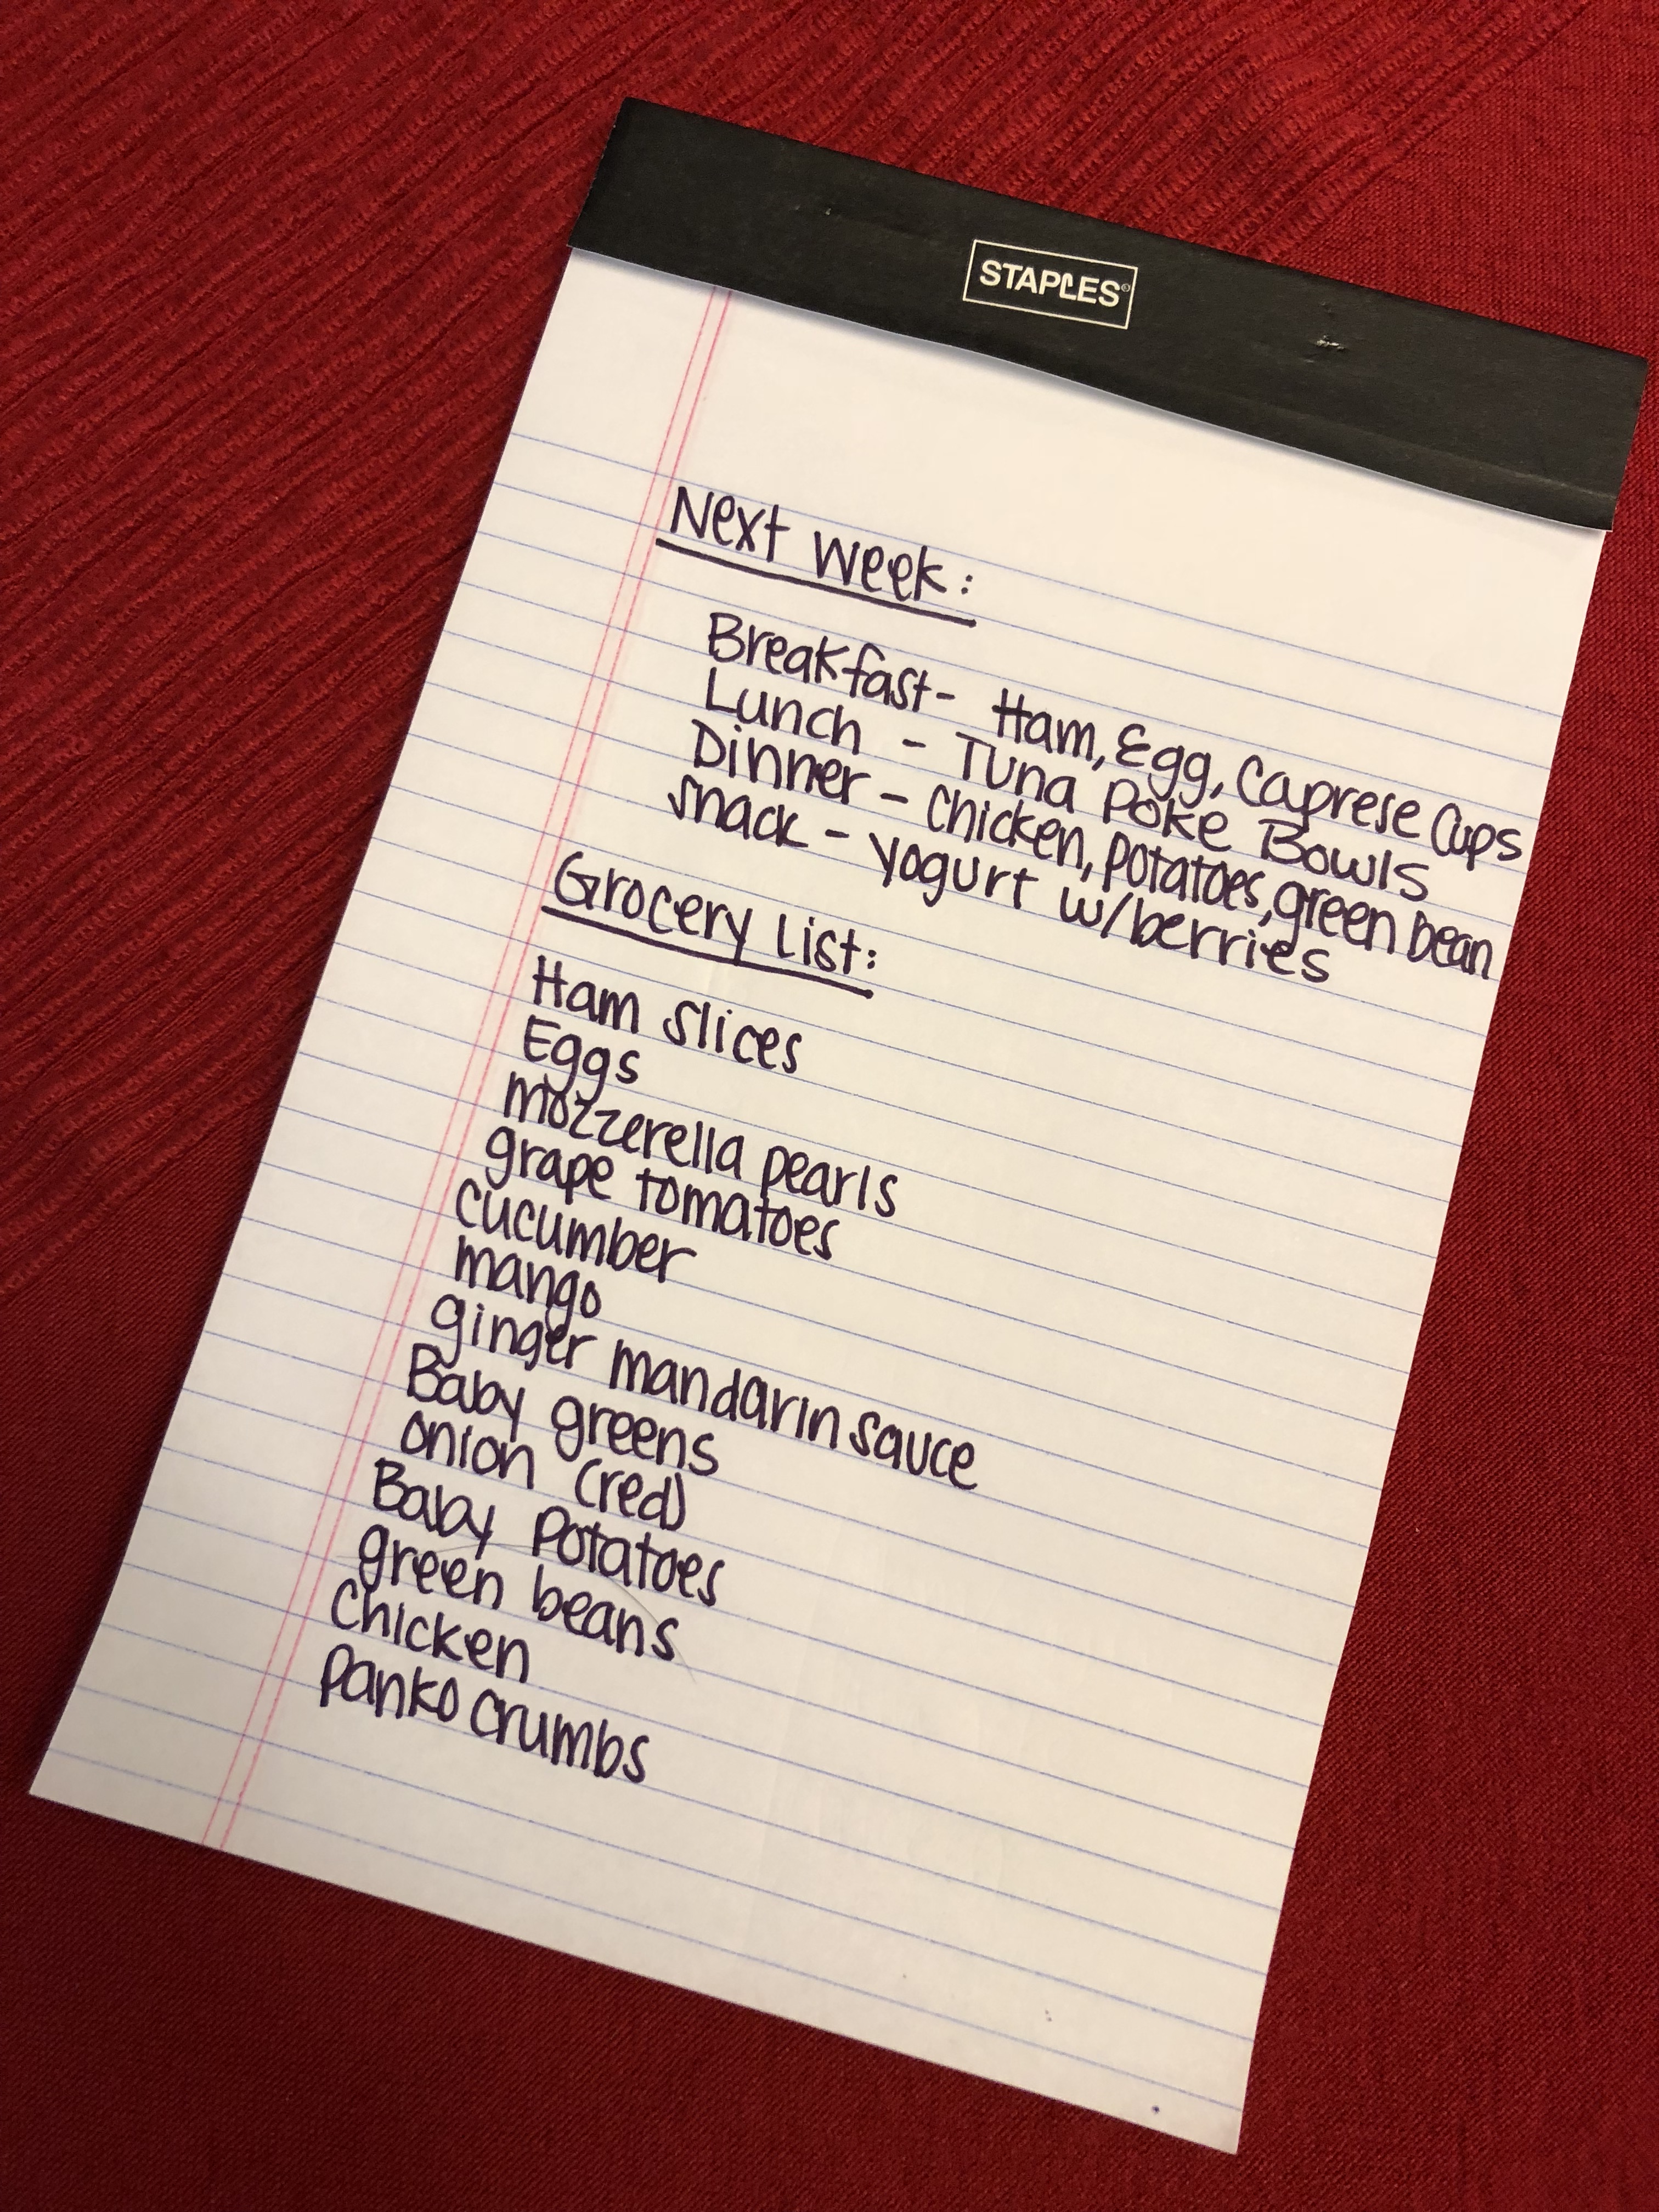 STAPLES®
Next week:
Breakfast- Ham, Egg, Caprese Cups
Lunch - Tuna Poke Bowls
Dinner - Chicken, potatoes, green bean
Snack - yogurt w/berries
Grocery List:
Ham slices
Eggs
mozzerella pearls
grape tomatoes
cucumber
mango
ginger mandarin sauce
Baby greens
onion (red)
Baby Potatoes
green beans
chicken
Panko crumbs